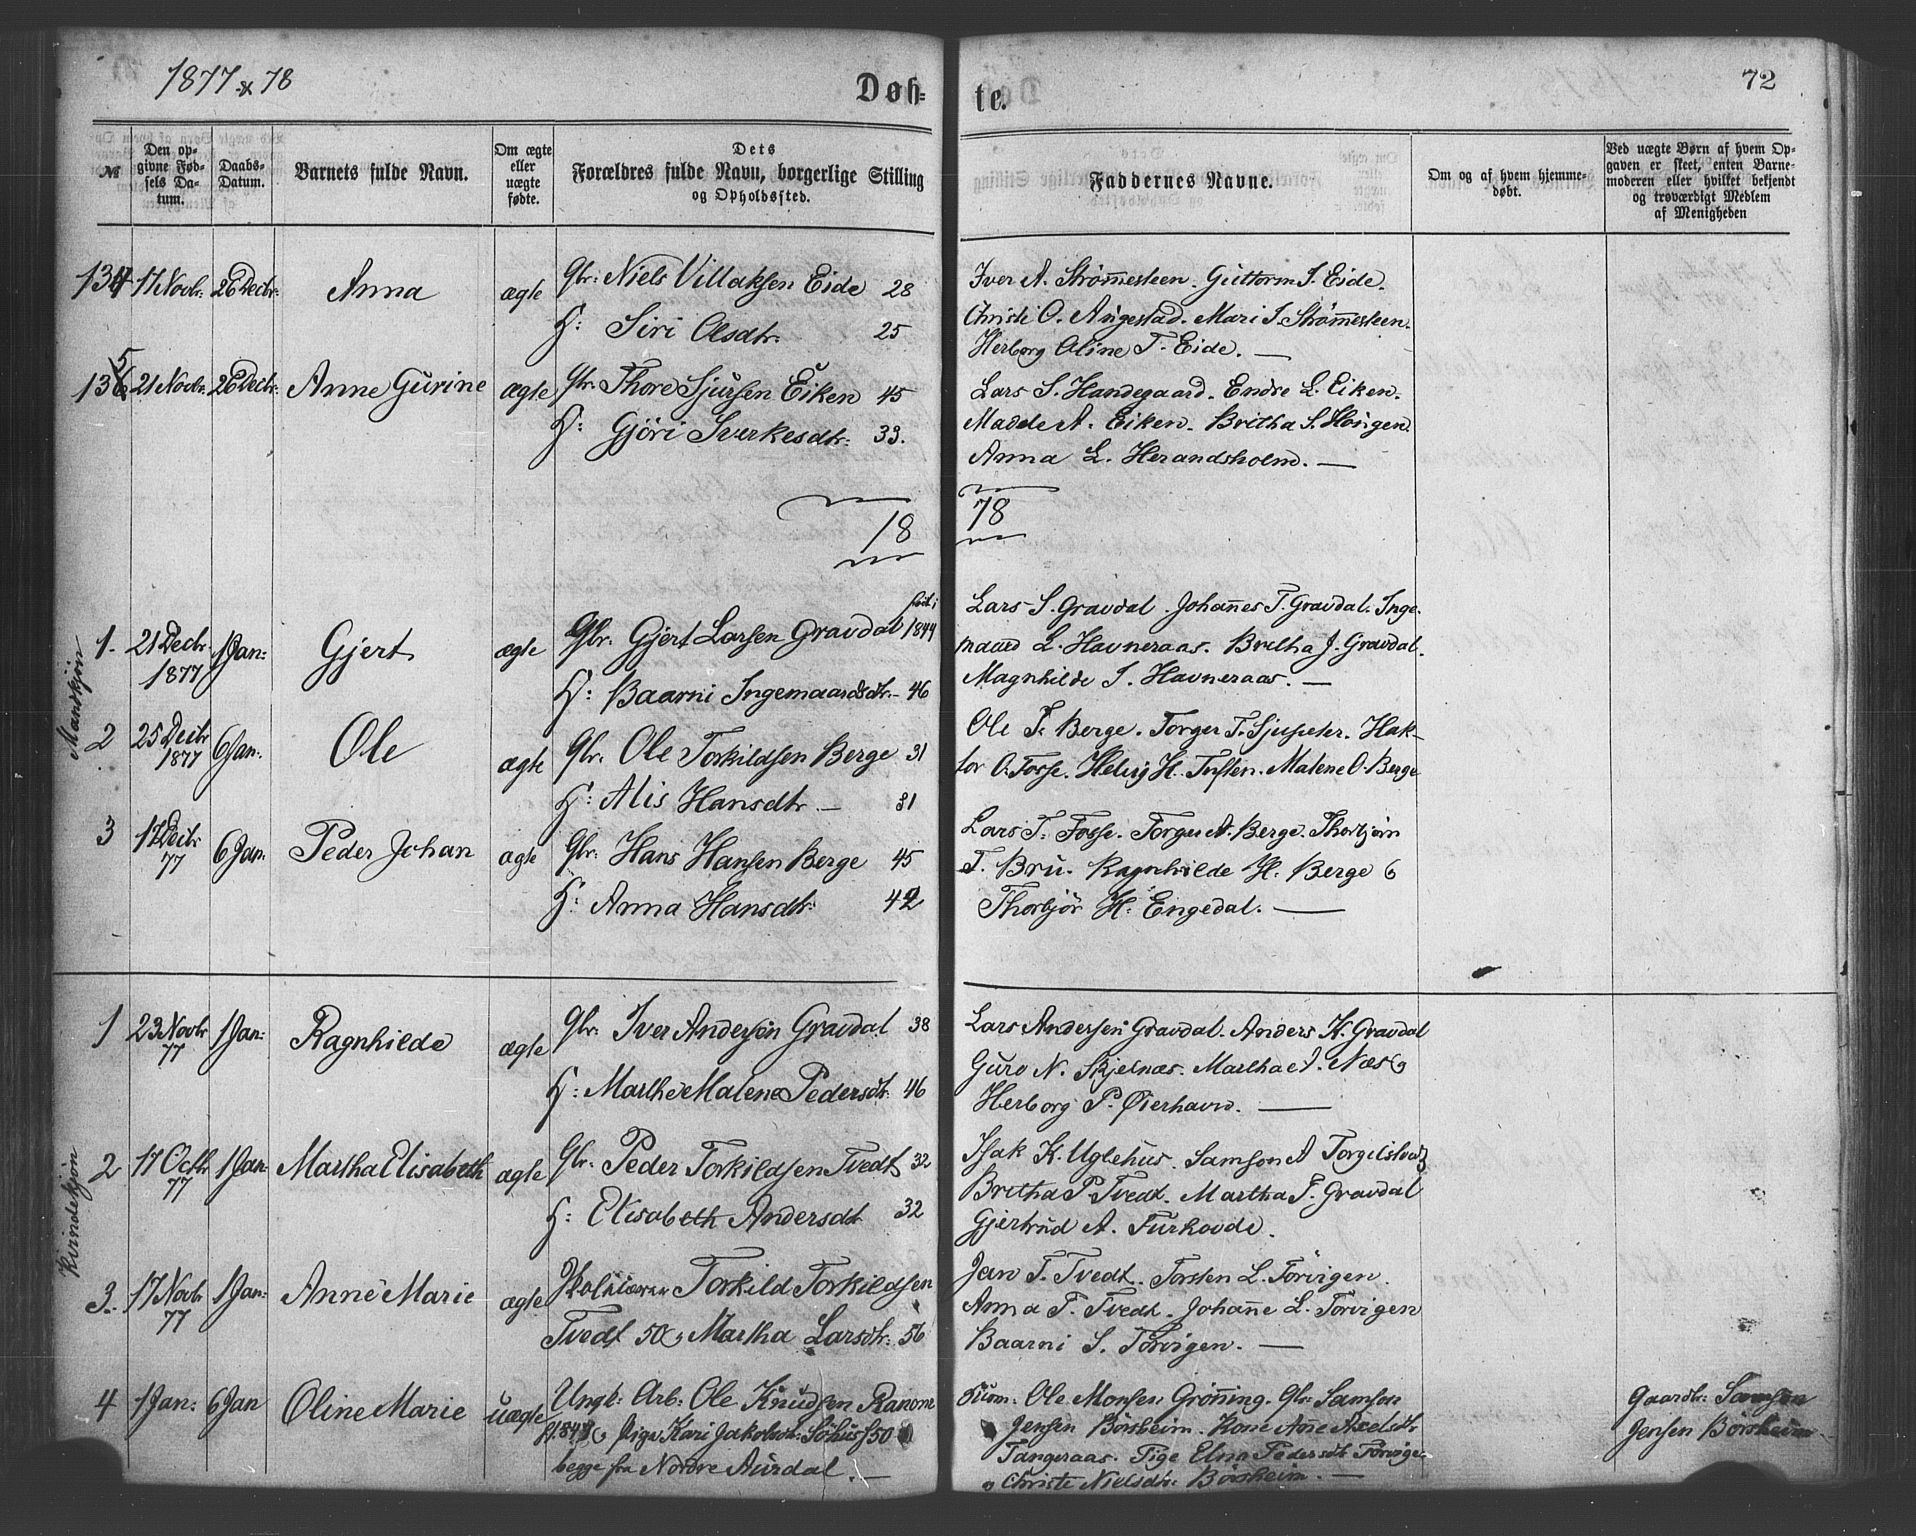 1877 & 78
Døb-
te.
72
№
Den op-
givne Fød-
sels Da-
tum.
Daabs-
Datum.
Barnets fulde Navn.
Om ægte
eller
uægte
fødte.
Dets
Forældres fulde Navn, borgerlige Stilling
og Opholdssted.
Faddernes Navne.
Om og af hvem hjemme-
døbt.
Ved uægte Børn af hvem Op-
gaven er skeet, enten Barne-
moderen eller hvilket bekjendt
og troværdigt Medlem
af Menigheden
134 17 Novbr: 26 Decbr: Anna ægte Gbr: Niels Villaksen Eide 28
H: Siri Olsdtr. 25
Iver A. Strømmesteen. Guttorm S. Eide.
Christi O. Augestad. Mari I. Strømmesteen.
Herborg Oline T. Eide. —
135 21 Novbr. 26 Decbr: Anne Gurine ægte Gbr: Thore Sjursen Eiken 45
H: Gjøri Sverkesdtr: 33.
Lars S. Handegaard. Endre L. Eiken.
Madele A. Eiken. Britha S. Høigen.
Anna L. Herandsholm. —
18
78
Mandkjøn
1. 21 Decbr 1877 1 Jan: Gjert ægte Gbr. Gjert Larsen Gravdal født i 1844
H: Baarni Ingemaardsdtr. — 46
Lars S. Gravdal. Johannes T. Gravdal. Inge-
maud L. Havneraas. Britha J. Gravdal.
Magnhilde I. Havneraas. —
2 25 Decbr 1877 6 Jan. Ole ægte Gbr. Ole Torkildsen Berge 31
H: Alis Hansdtr. — 31
Ole T. Berge. Torger T. Sjusæter. Hak-
tor O. Fosse. Helvig H. Tuften. Malene O. Berge
3 17 Decbr 77 6 Jan: Peder Johan ægte Gbr: Hans Hansen Berge 45
H: Anna Hansdtr: 42
Lars T. Fosse. Torger A. Berge. Thorbjørn
T. Bru. Ragnhilde H. Berge
Thorbjør H. Engedal. —
Kvindekjøn
1 23 Novbr 77 1 Jan: Ragnhilde ægte Gbr: Iver Andersen Gravdal 38
H: Marthe Malene Pedersdtr. 46
Lars Andersen Gravdal. Anders K. Gravdal
Guro N. Skjelnæs. Martha I. Næs
Herborg P. Øierhavn. —
2 17 Octbr 77 1 Jan: Martha Elisabeth ægte Gbr: Peder Torkildsen Tvedt 32
H: Elisabeth Andersdt. 32
Isak K. Uglehus. Samson A Torgilstvedt
Britha P. Tvedt. Martha T. Gravdal
Gjertrud A. Furhovde.
3. 17 Novbr 77 1 Jan: Anne Marie ægte Torkild Torkildsen
Tvedt 50 Martha Larsdtr: 56
Jan T. Tvedt. Torsten L. Tørvigen.
Anna T. Tvedt. Johanne L. Tørvigen
Baarni S. Tørvigen. —
4 1 Jan: 6 Jan Oline Marie uægte Ungk: Arb: Ole Knudsen
Pige Kari 50
begge fra Nordre Aurdal. —
Ole Monsen Grønning. Gbr. Samson
Jensen Børsheim. Kone Ane Axelsdtr
Tangeraas. Pige Elna Pedersdt Tørvigen
Christe Nielsdtr: Børsheim. —
Gaardbr: Samson
Jensen Børsheim